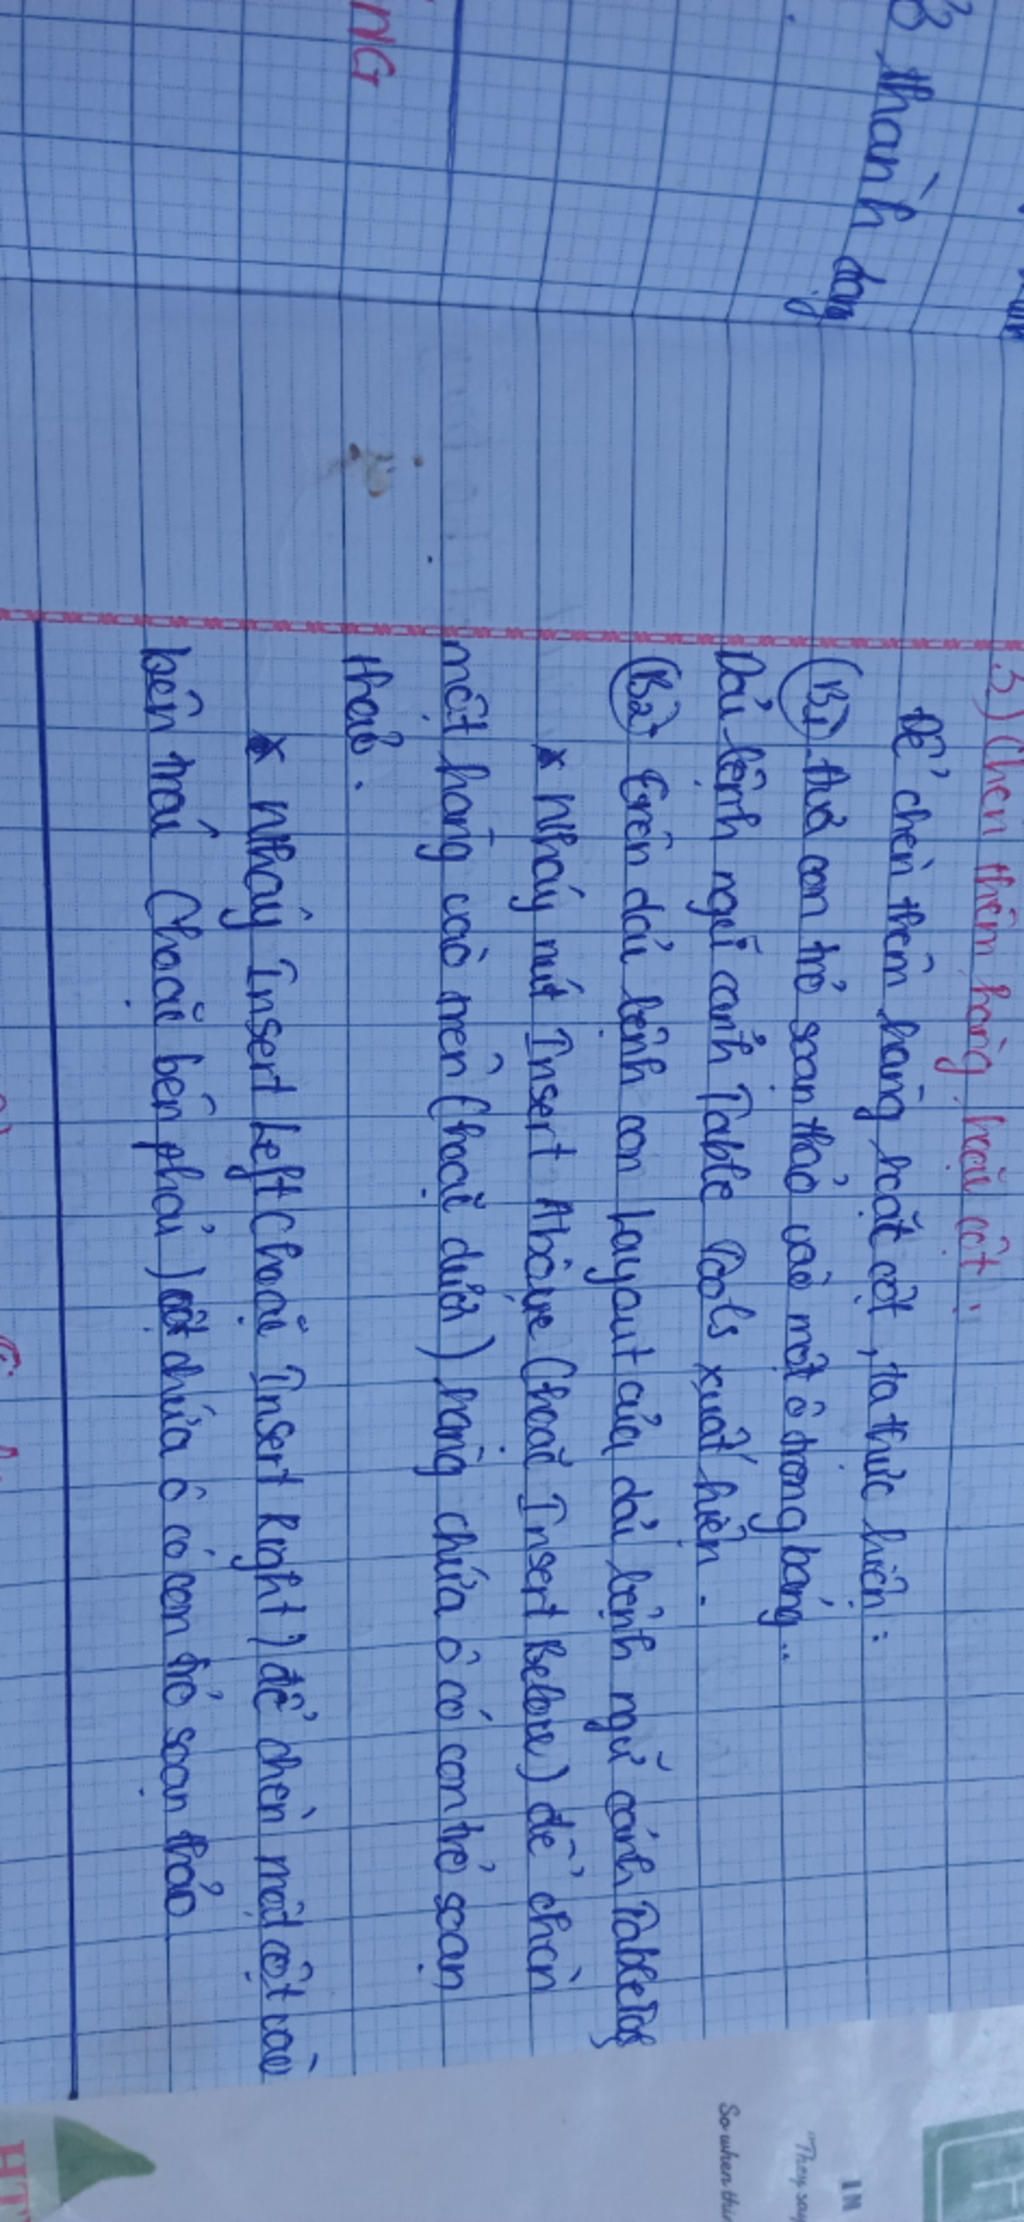 3) Chèn thêm hàng, hoặc cột:
Để chèn thêm hàng hoặc cột, ta thực hiện:
(B1) Đưa con trỏ soạn thảo vào một ô trong bảng..
Dải lệnh ngữ cảnh Table Tools xuất hiện.
(B2) trên dải lệnh con Layout của dải lệnh ngữ cảnh Table Tools
* Nháy nút Insert Above (hoặc Insert Below) để chèn
một hàng vào trên (hoặc dưới) hàng chứa ô có con trỏ soạn
thảo.
* Nháy Insert Left (hoặc Insert Right) để chèn một cột vào
bên trái (hoặc bên phải) cột chứa ô có con trỏ soạn thảo
thành dạng
NG
IN
They say
So when thi
HT